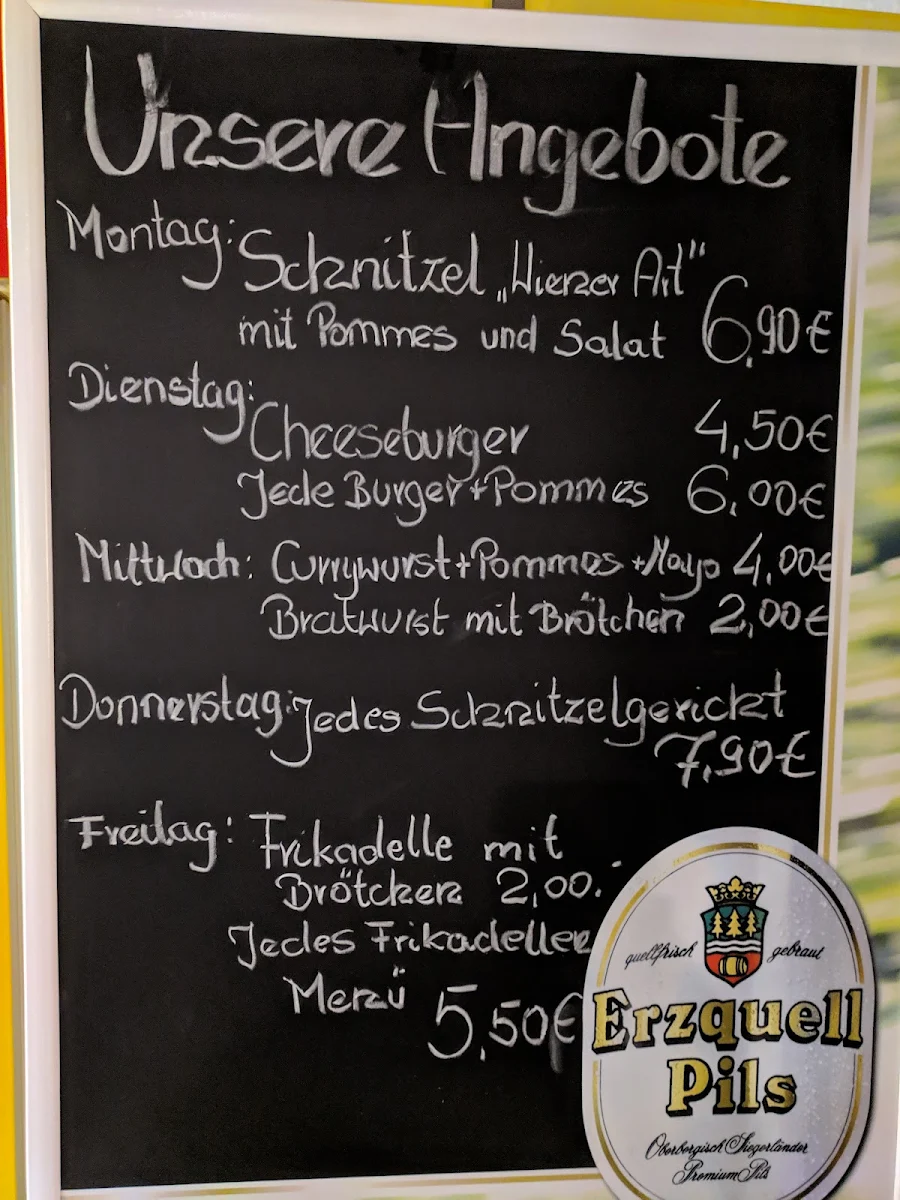 Unsere Angebote
Montag: Schnitzel „Wiener Art"
mit Pommes und Salat 6,90€
Dienstag:
Cheeseburger 4,50€
Jede Burger+Pommes 6,00€
Mittwoch: Currywurst+Pommes+Mayo 4,00€
Bratwurst mit Brötchen 2,00€
Donnerstag: Jedes Schnitzelgericht
7,90€
Freitag: Frikadelle mit
Brötchen 2,00.-
Jedes Frikadellen
Menü
5,50€
quellfrisch gebraut
Erzquell
Pils
Oberbergisch Siegerländer
Premium Pils